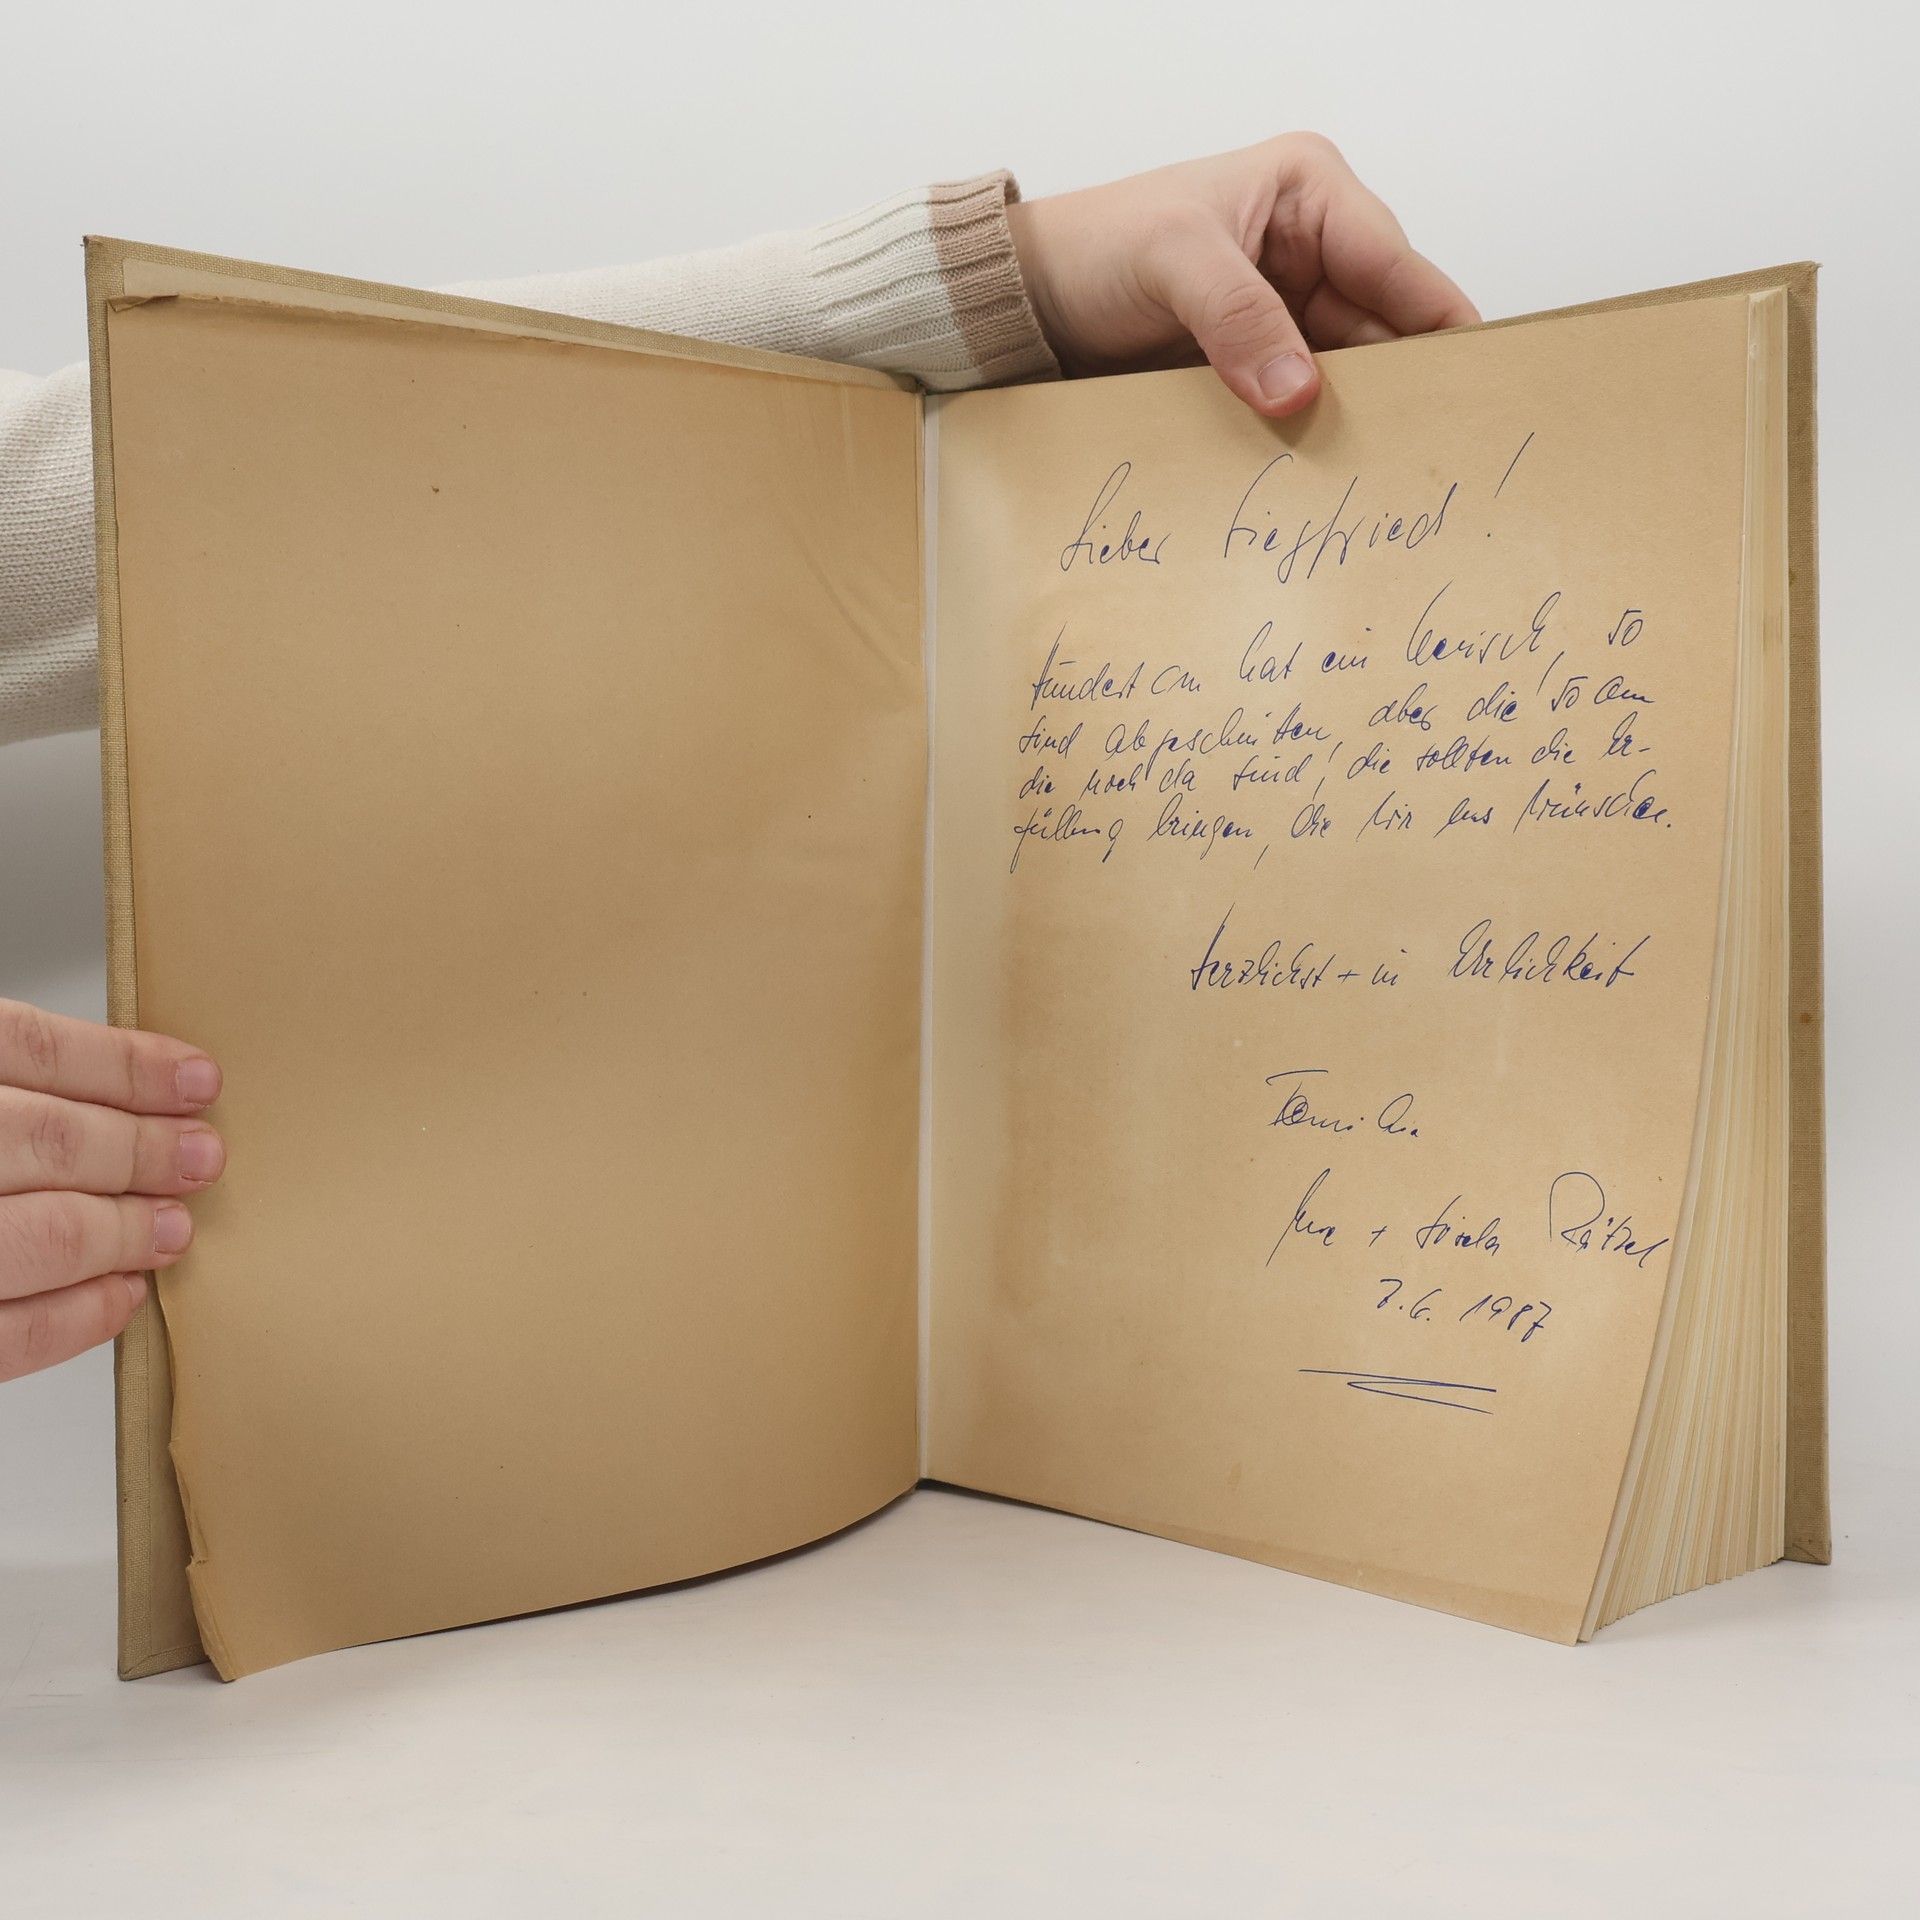 Lieber Siegfried!
Hundert cm hat ein Mensch, 50
sind abgeschnitten, aber die 50 cm
die noch da sind, die sollten die Er-
füllung bringen, die wir uns wünschen.
Herzlichst + in Ehrlichkeit
+ Gisela Rätzel
7.6. 1987